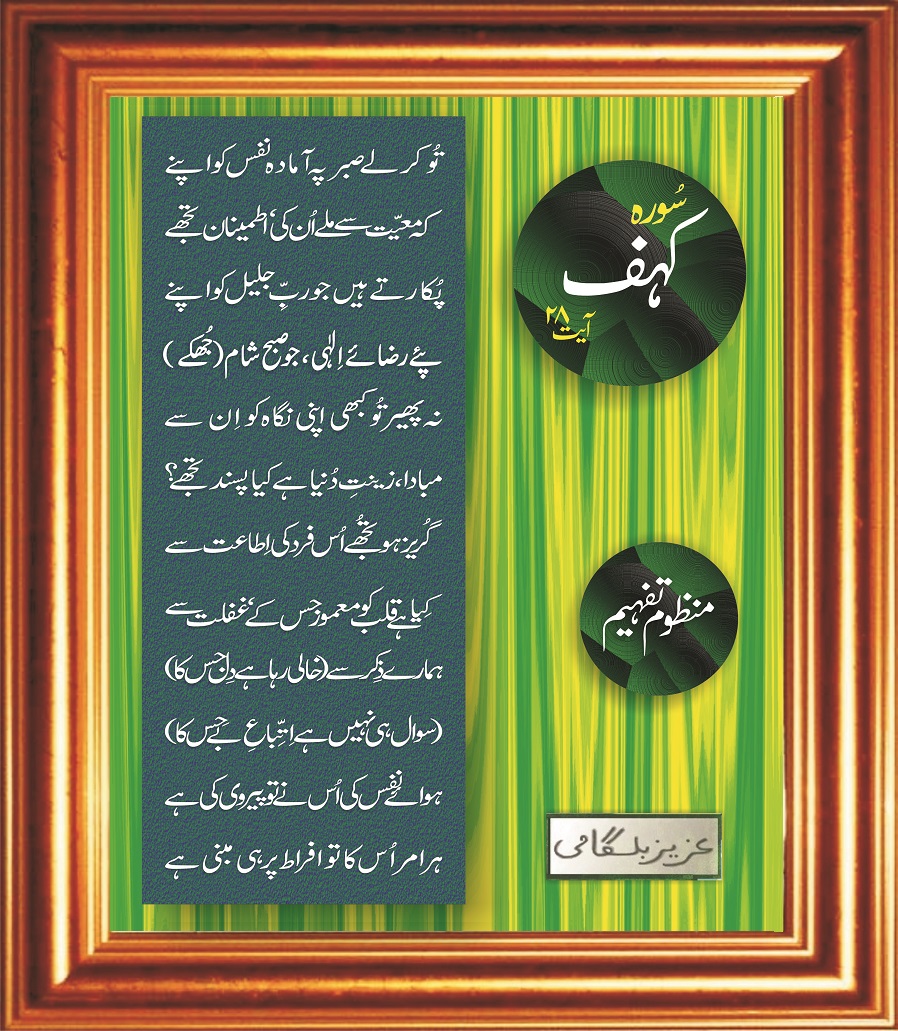 سُورہ
کہف
آیت ۲۸
تُو کر لے صبر پہ آمادہ نفس کو اپنے
کہ معیّت سے ملے اُن کی‘ اطمینان تجھے
پُکارتے ہیں جو ربِّ جلیل کو اپنے
پئے رضائے اِلٰہی، جو صبح شام (جُھکے)
نہ پھیر تُو کبھی اپنی نگاہ کو اِن سے
مبادا، زینتِ دُنیا ہے کیا پسند تجھے؟
گُریز ہو تجھُے اُس فرد کی اِطاعت سے
کِیا ہے قلب کو معمور جس کے‘ غفلت سے
ہمارے ذِکر سے (خالی رہا ہے دِل جس کا)
(سوال ہی نہیں ہے اِتّباعِ بے جس کا)
ہوائے نفس کی اُس نے تو پیروی کی ہے
ہر امر اُس کا تو افراط پر ہی مبنی ہے
منظوم تفہیم
عزیز بلگامی